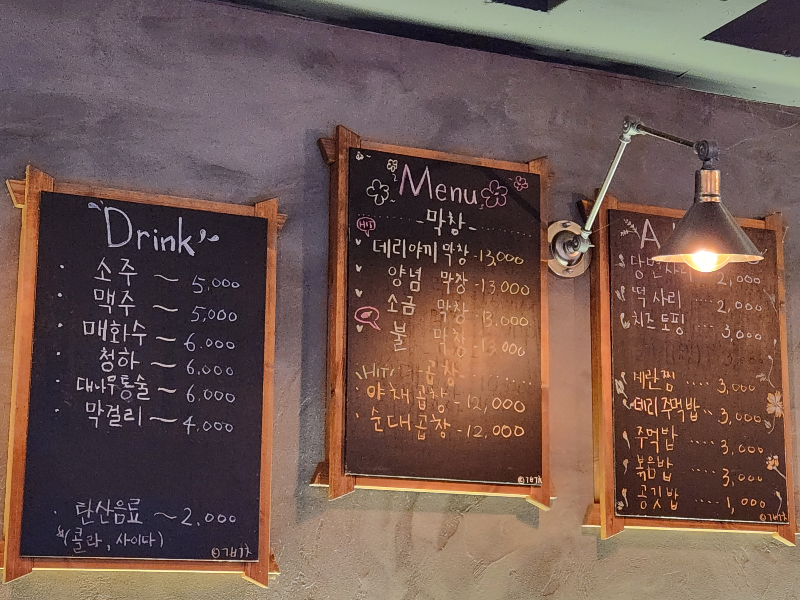 Drink
소주 ~ 5,000
맥주 ~ 5,000
매화수 ~ 6.000
청하 ~ 6.000
대나무통술 ~ 6,000
막걸리 ~ 4,000
탄산음료 ~ 2.000
(콜라, 사이다)
Menu
-막창-
HIT
데리야끼 막창 -13,000
양념 막창 -13000
소금 막창 -13.000
불 막창 -13000
HIT 곱창
야채곱창 -12,000
순대곱창 -12,000
A
당면사리 2,000
떡사리 2,000
치즈토핑 3,000
계란찜 .... 3,000
데리주먹밥 .. 3,000
주먹밥 .... 3,000
볶음밥 .... 3,000
공깃밥 .... 1,000